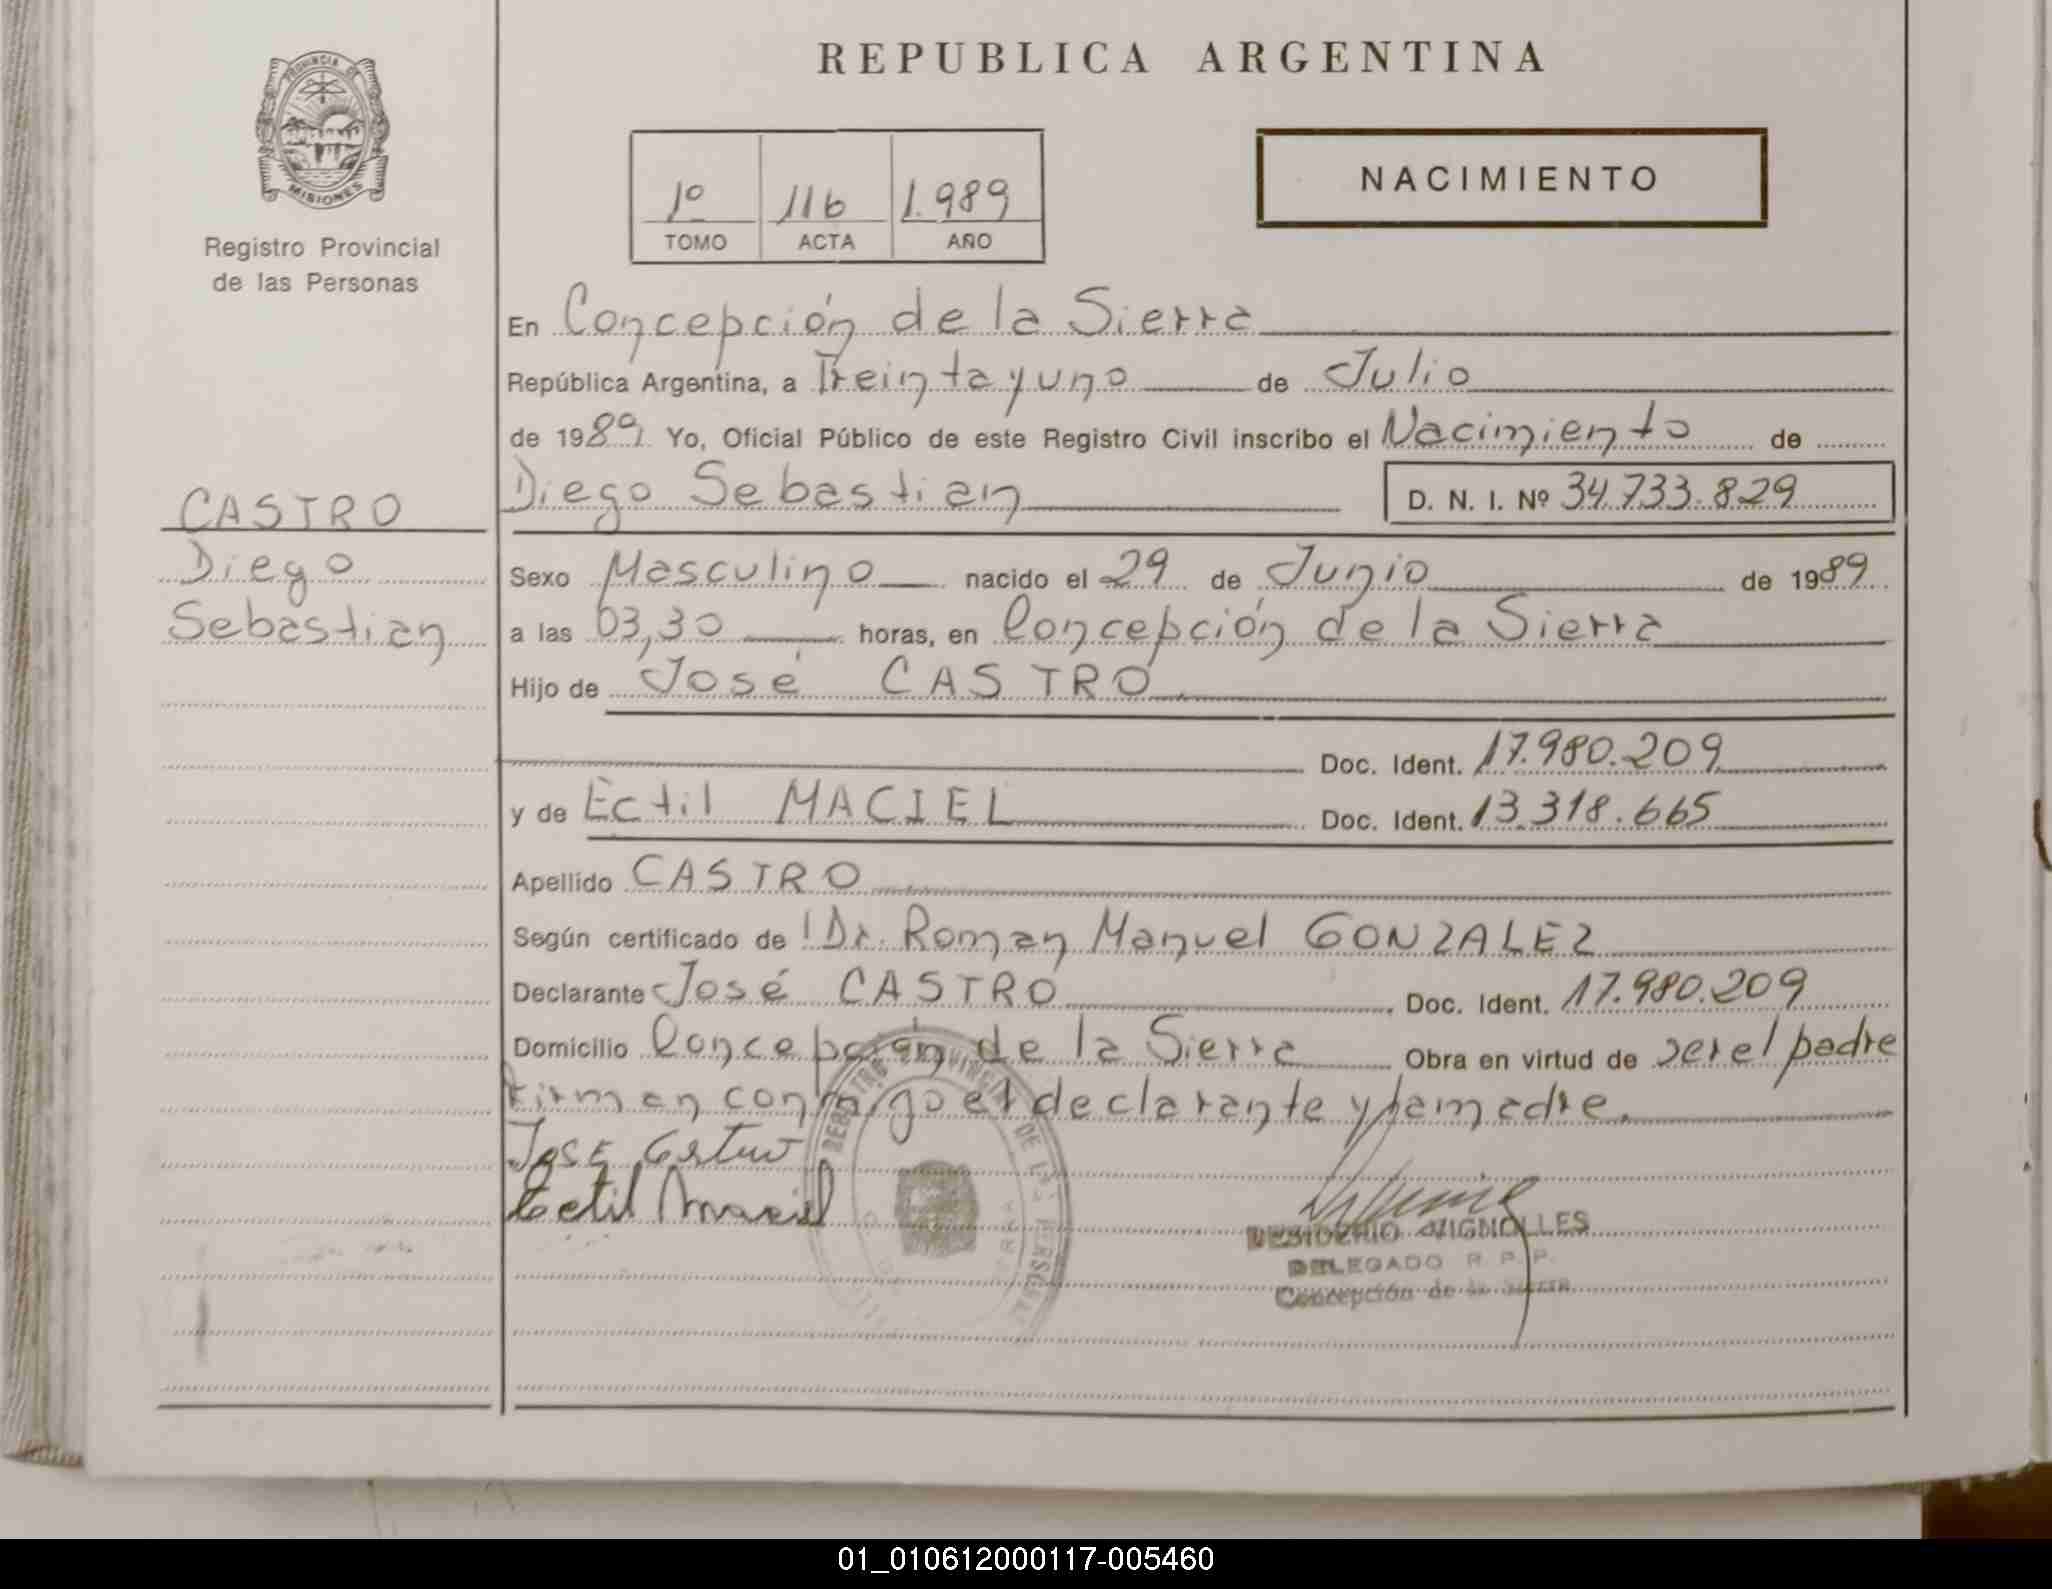 REPUBLICA ARGENTINA
PROVINCIA DE
MISIONES
Registro Provincial
de las Personas
NACIMIENTO
1º 116 1.989
TOMO ACTA AÑO
En Concepción de la Sierra
República Argentina, a Treinta y uno de Julio
de 1989 Yo, Oficial Público de este Registro Civil inscribo el Nacimiento de
Diego Sebastian D. N. I. Nº 34.733.829
CASTRO
Diego
Sebastian
Sexo Masculino nacido el 29 de Junio de 1989
a las 03,30 horas, en Concepción de la Sierra
Hijo de José CASTRO
Doc. Ident. 17.980.209
y de Ectil MACIEL Doc. Ident. 13.318.665
Apellido CASTRO
Según certificado de Dr. Roman Manuel GONZALEZ
Declarante José CASTRO Doc. Ident. 17.980.209
Domicilio Concepción de la Sierra Obra en virtud de ser el padre
Firman conmigo el declarante y la madre.
JOSE Castro
Ectil Maciel
REGISTRO PROVINCIAL DE LAS PERSONAS
DESIDERIO VIGNOLLES
DELEGADO R. P. P.
Concepción de la Sierra
01_010612000117-005460